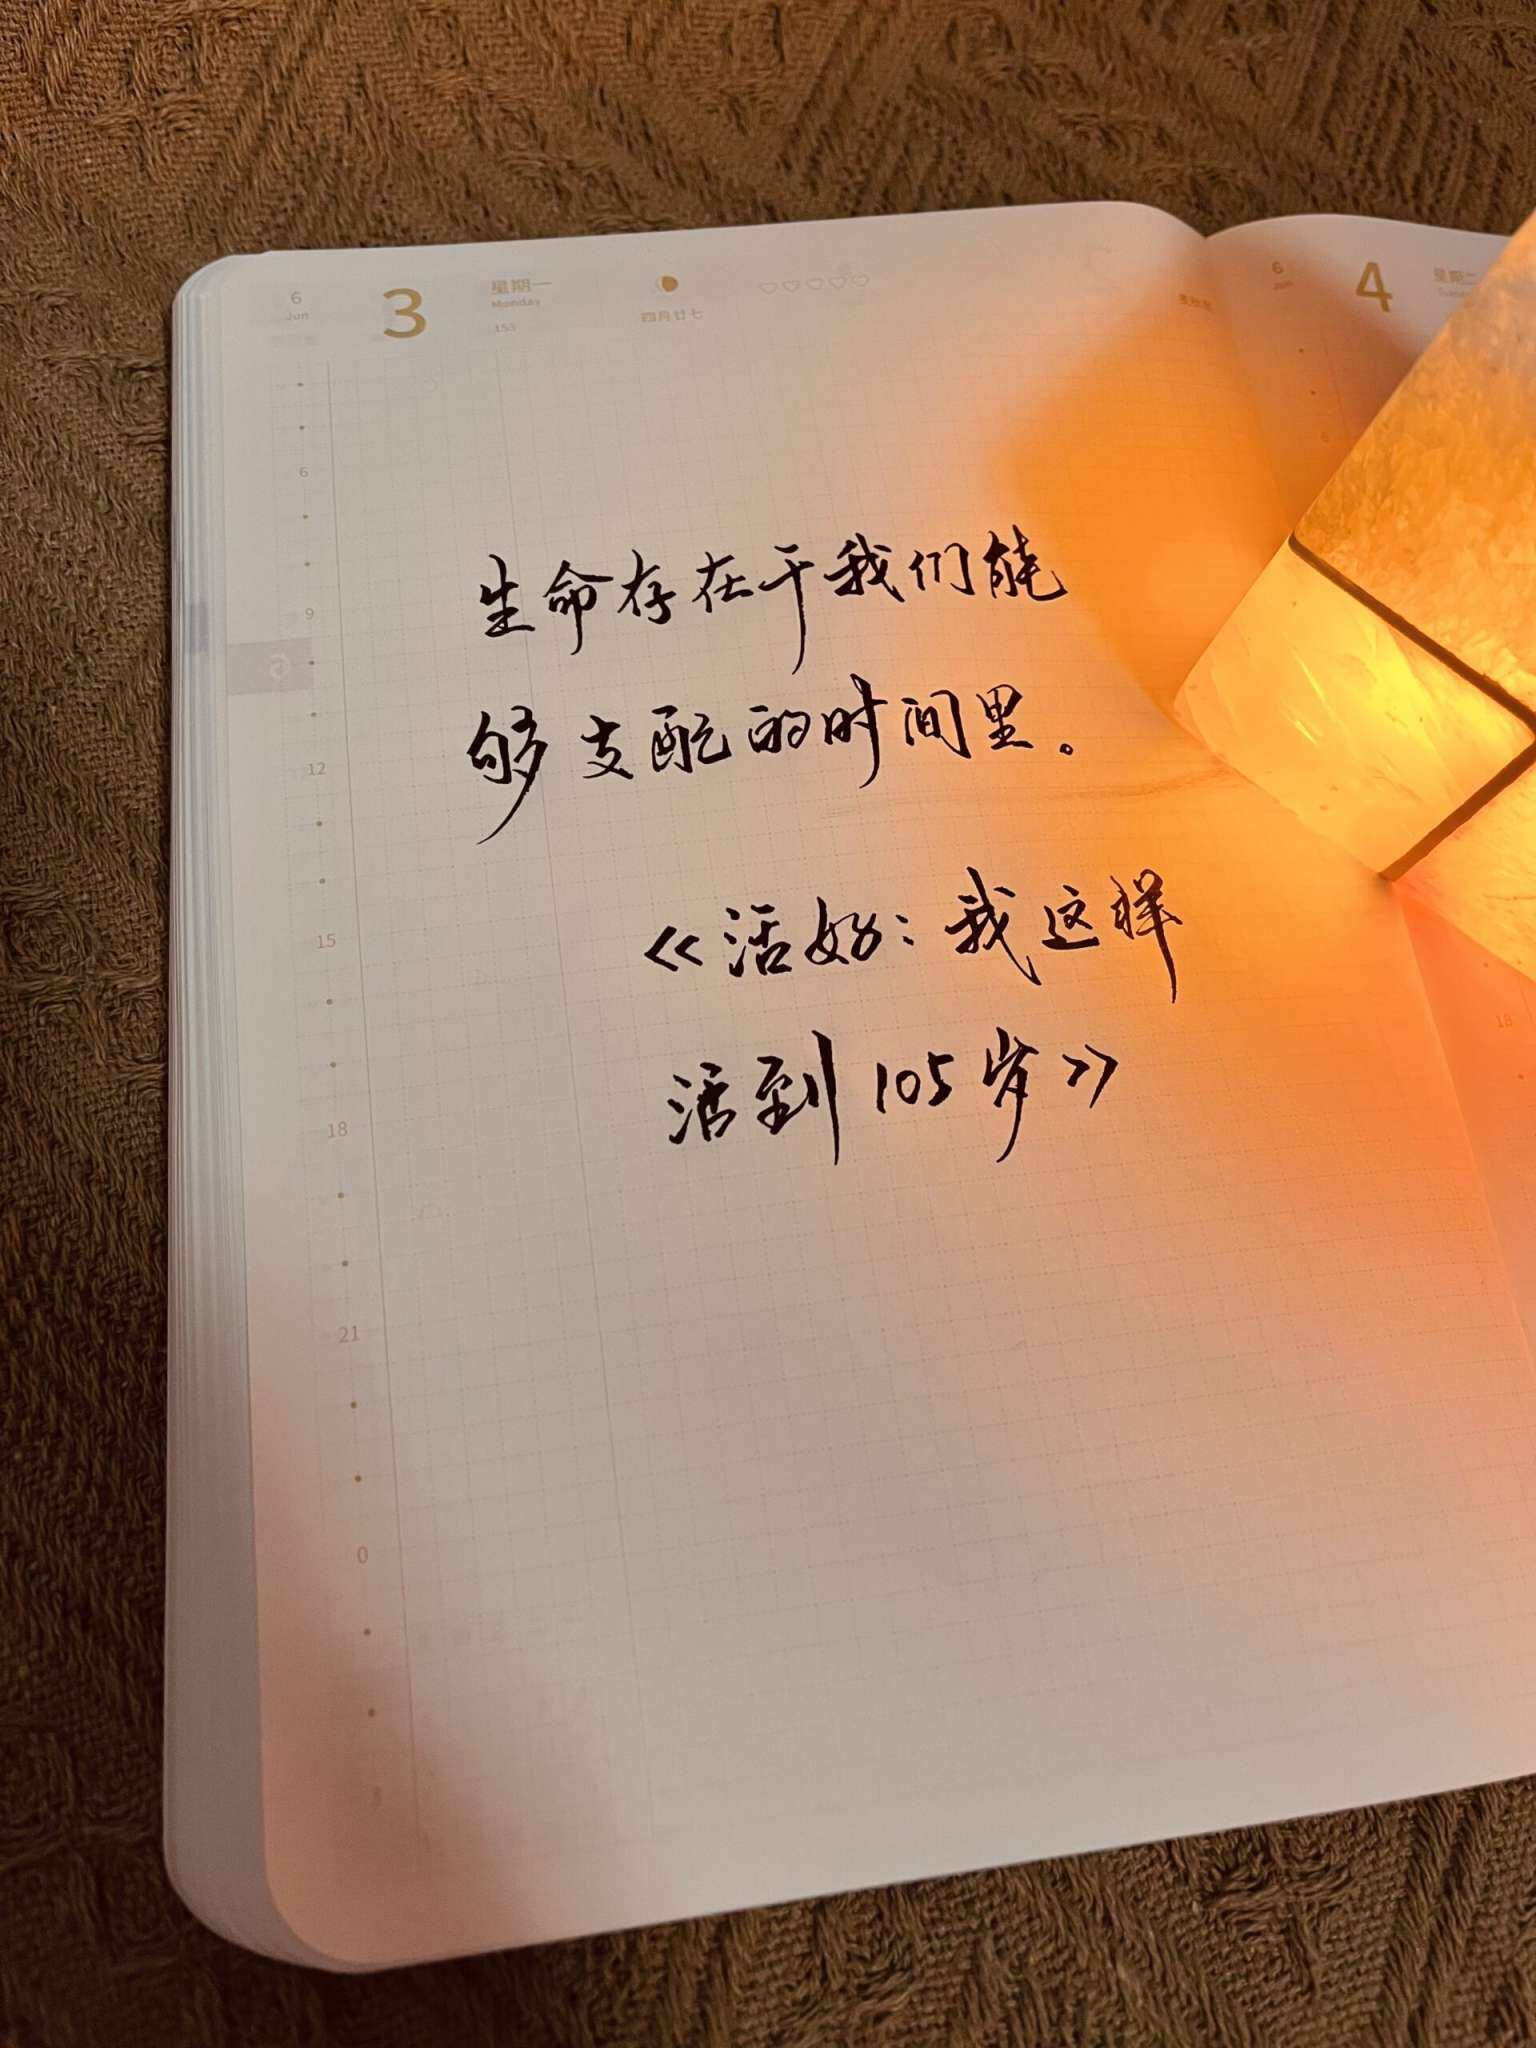 6 3 星期一
Jun Monday
155 四月廿七
6 4 星期二
Jun
生命存在于我们能
够支配的时间里。
《活好：我这样
活到105岁》
6
9
6
12
15
18
21
0
3
18